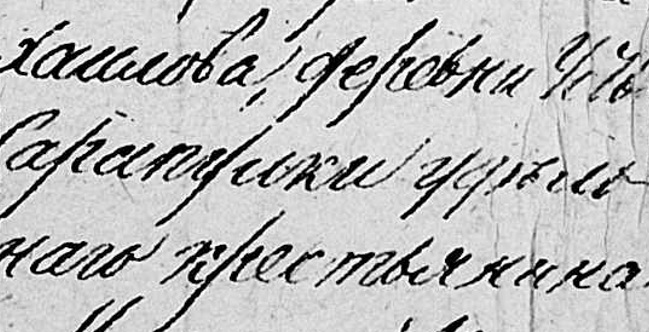 хаилова, деревни
Сарапулки удѣль
наго крестьянина